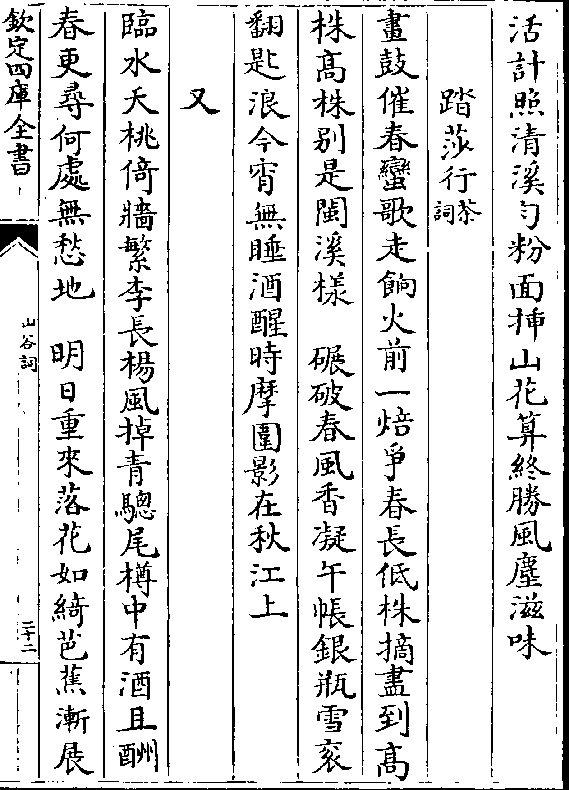 活計照清溪勻粉面挿山花算終勝風塵滋味
踏莎行茶詞
畫鼓催春蠻歌走餉火前一焙爭春長低株摘盡到髙
株髙株别是閩溪様　碾破春風香凝午帳銀瓶雪衮
翻匙浪今宵無睡酒醒時摩圍影在秋江上
又
臨水夭桃倚牆繁李長楊風掉青驄尾樽中有酒且酬
春更尋何處無愁地　明日重來落花如綺芭蕉漸展
欽定四庫全書
山谷詞
二十二